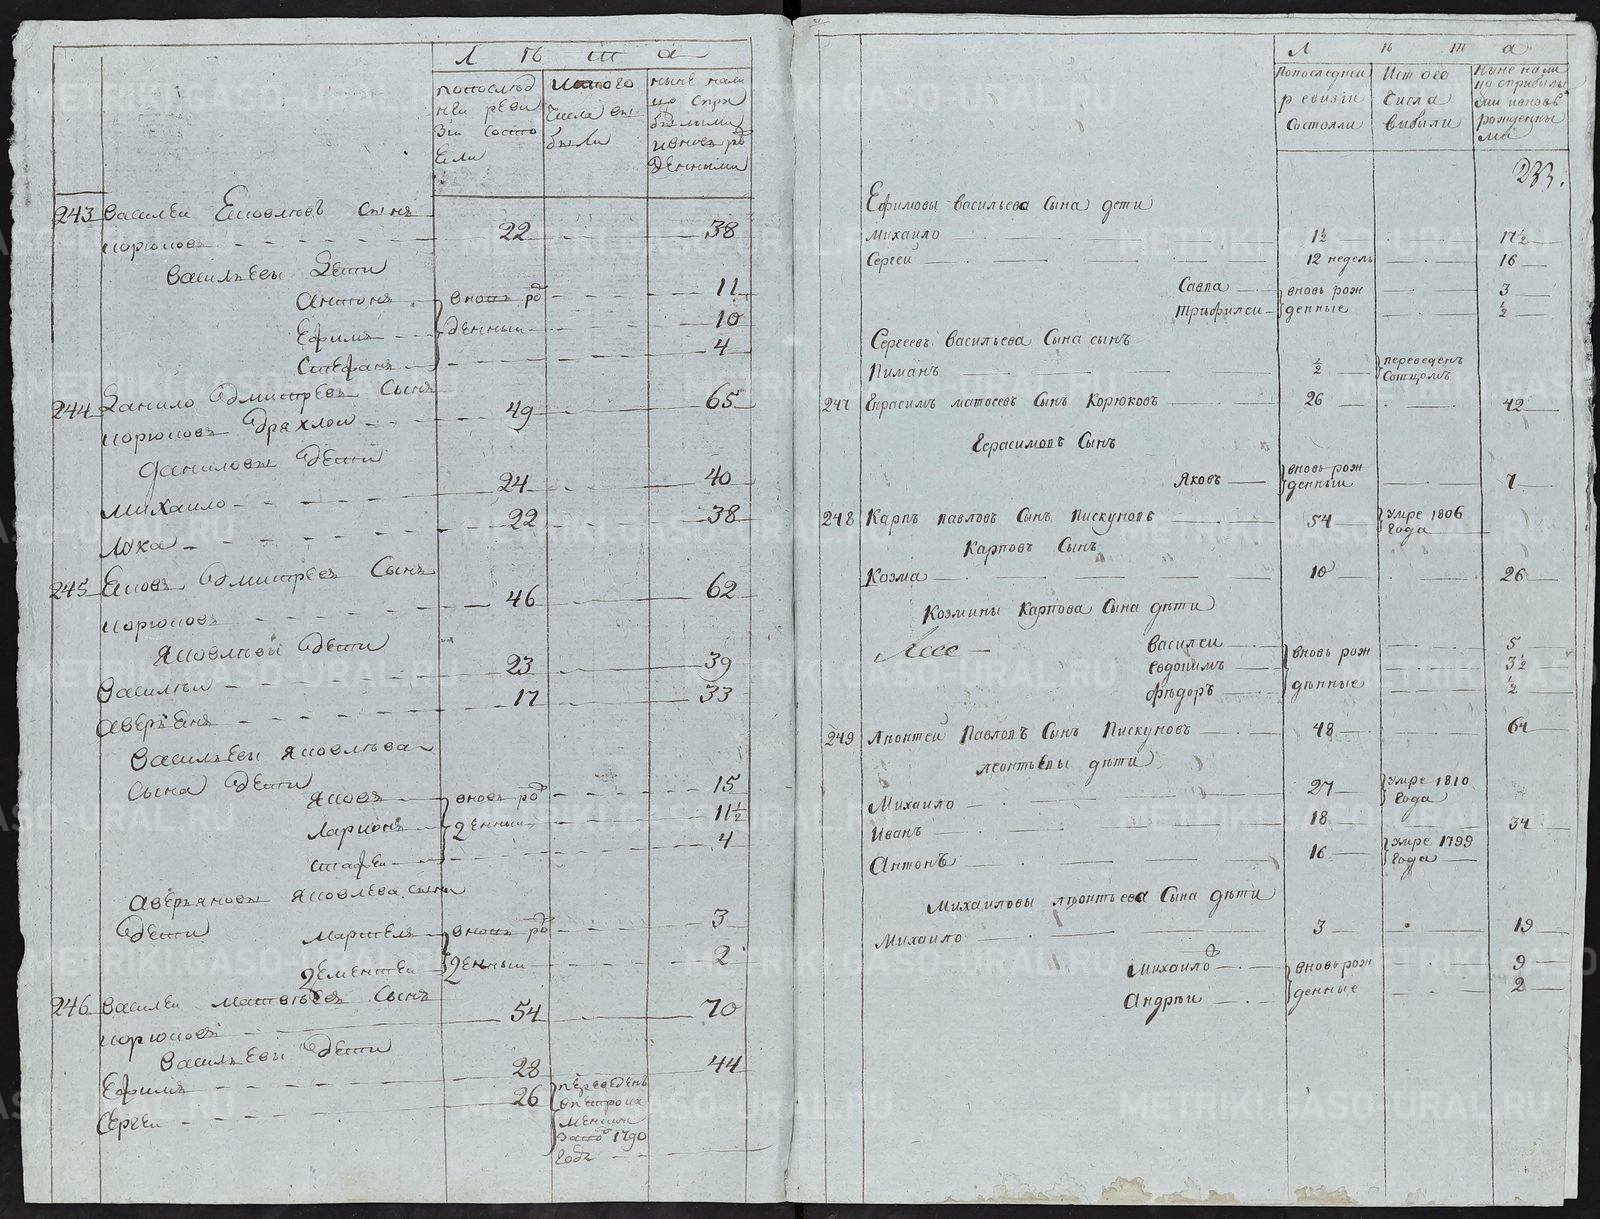 Л ѣ т а
попослѣд
ней реви
зіи состо
яли
истого
числа вы
были
ныне нали
цо спри
былыми
ивновь ро
жденными
243 Василеи Яковлевъ сынъ
корюковъ 22 38
Васильевы Дети
антонъ вновь ро 11
Ефимъ жденныи 10
Стефанъ 4
244 Данило Дмитревъ Сынъ
корюковъ Дряхлои 49 65
Даниловы Дети
михаило 24 40
Лука 22 38
245 Яковъ Дмитревъ Сынъ
корюковъ 46 62
Яковлевы Дети
Василеи 23 39
аверьянъ 17 33
Васильевы яковлева
сына Дети
яковъ вновь ро 15
Ларионъ жденныи 11½
4
аверьяновы яковлева сына
Дети
вновь ро 3
Дементеи жденныи 2
246 Василеи матвеевъ Сынъ
корюковъ 54 70
Васильевы Дети
Ефимъ 28 44
Сергеи 26 переведенъ
1790
годъ
Л ѣ т а
Попоследнеи
ревизіи
Состояли
Ист ого
Числа
выбыли
Ныне нали
цо сприбылы
ми ивновь
рожденны
ми
233.
Ефимовы васильева Сына дети
Михаило 1½ 17½
Сергеи 12 недель 16
Савва вновь рож 3
Трифилеи денные ½
Сергеевъ васильева Сына сынъ
Пиманъ ½ переведенъ
Сотцомъ
247 Герасимъ матвеевъ Сынъ Корюковъ 26 42
Герасимовъ Сынъ
Яковъ вновь рож
денныи 7
248 Карпъ павловъ Сынъ Пискуновъ 54 умре 1806
Года
Карповъ Сынъ
Козма 10 26
Козмины Карпова Сына дѣти
Василеи 5
евдокимъ вновь рож 3½
Фѣдоръ дѣнные ½
249 Леонтеи Павловъ Сынъ Пискуновъ 48 64
леонтьевы дѣти
Михаило 27 умре 1810
Года
Иванъ 18 34
Антонъ 16 умре 1799
Года
Михаиловы леонтьева Сына дѣти
Михаило 3 19
Михаило вновь рож 9
Андрѣи денные 2
METRIKI.GASO-URAL.RU